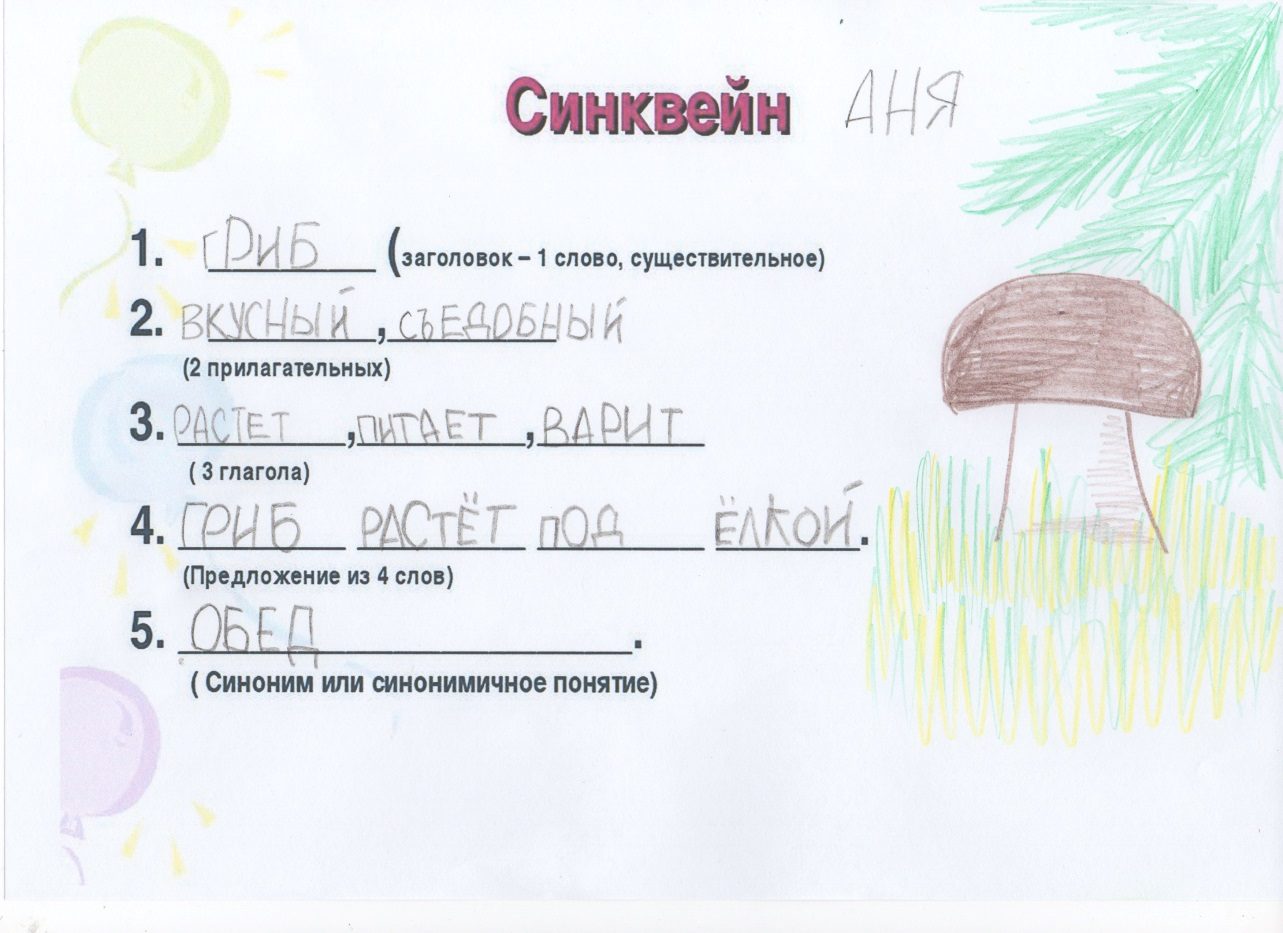 Синквейн АНЯ
1. ГРИБ (заголовок – 1 слово, существительное)
2. ВКУСНЫЙ, СЪЕДОБНЫЙ
(2 прилагательных)
3. РАСТЕТ, ПИТАЕТ, ВАРИТ
( 3 глагола)
4. ГРИБ РАСТЁТ ПОД ЁЛКОЙ.
(Предложение из 4 слов)
5. ОБЕД.
( Синоним или синонимичное понятие)